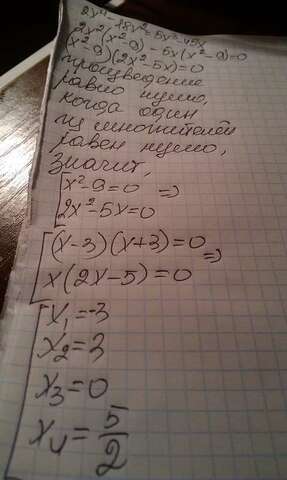 2x⁴-18x²=5x³-45x
2x²(x²-9)-5x(x²-9)=0
(x²-9)(2x²-5x)=0
произведение
равно нулю,
когда один
из множителей
равен нулю,
значит,
[x²-9=0 =>
2x²-5x=0
[(x-3)(x+3)=0 =>
x(2x-5)=0
[x₁=-3
x₂=3
x₃=0
x₄=5/2